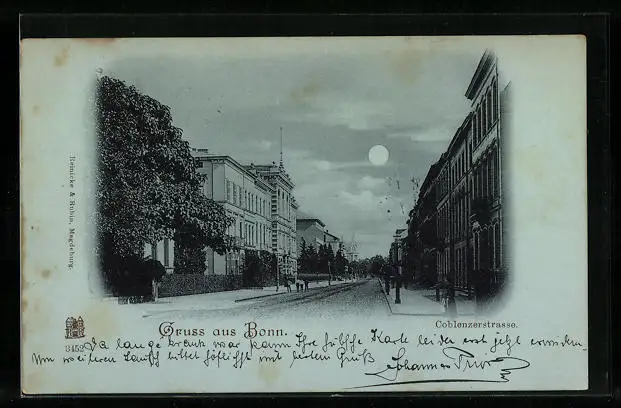 Reinicke & Rubin, Magdeburg.
Gruss aus Bonn.
Coblenzerstrasse.
3452
Da lange krank war kann Ihre hübsche Karte leider erst jetzt erwidern.
Um weiteren Tausch bittet höflichst mit bestem Gruß Johannes